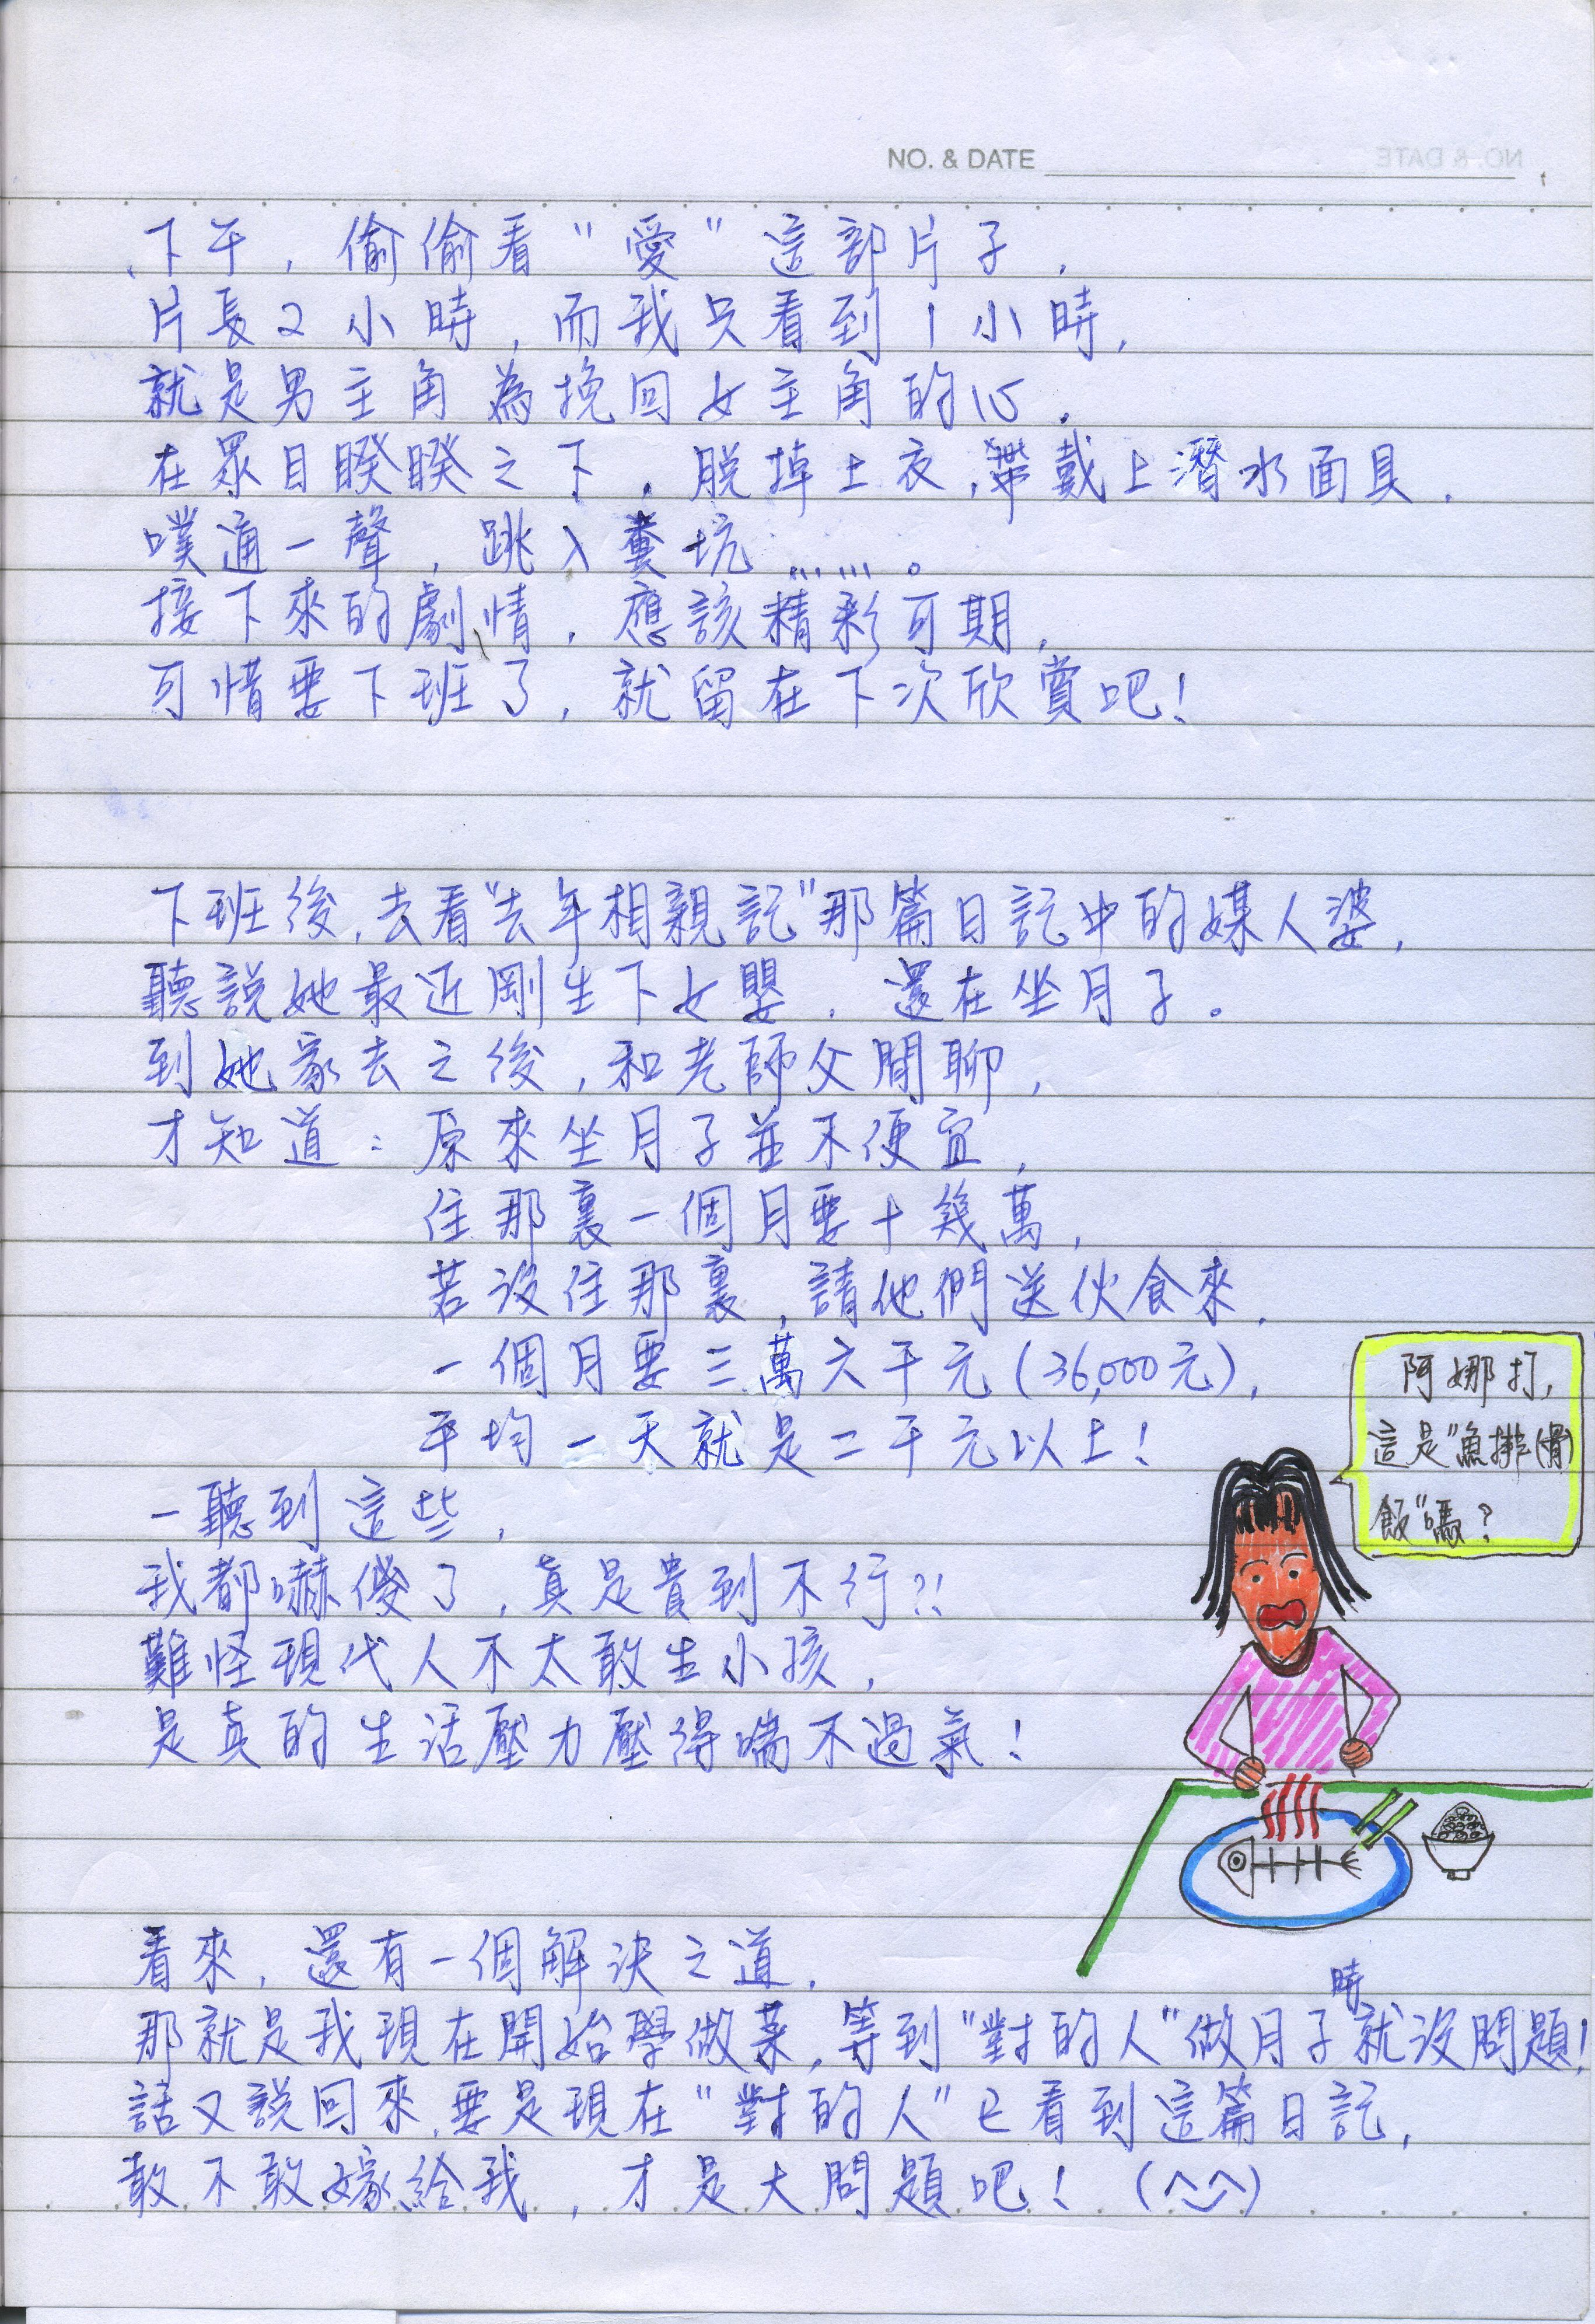 NO. & DATE
下午，偷偷看"愛"這部片子，
片長2小時，而我只看到1小時，
就是男主角為挽回女主角的心，
在眾目睽睽之下，脫掉上衣，戴上潛水面具，
噗通一聲，跳入糞坑………。
接下來的劇情，應該精彩可期，
可惜要下班了，就留在下次欣賞吧！
下班後，去看"去年相親記"那篇日記中的媒人婆，
聽說她最近剛生下女嬰，還在坐月子。
到她家去之後，和老師父閒聊，
才知道：原來坐月子並不便宜，
住那裏一個月要十幾萬，
若沒住那裏，請他們送伙食來，
一個月要三萬六千元(36,000元)，
平均一天就是二千元以上！
一聽到這些，
我都嚇傻了，真是貴到不行?!
難怪現代人不太敢生小孩，
是真的生活壓力壓得喘不過氣！
阿娜打，
這是"魚排(骨)
飯"嗎？
看來，還有一個解決之道，
那就是我現在開始學做菜，等到"對的人"做月子時就沒問題！
話又說回來，要是現在"對的人"已看到這篇日記，
敢不敢嫁給我，才是大問題吧！(^^)